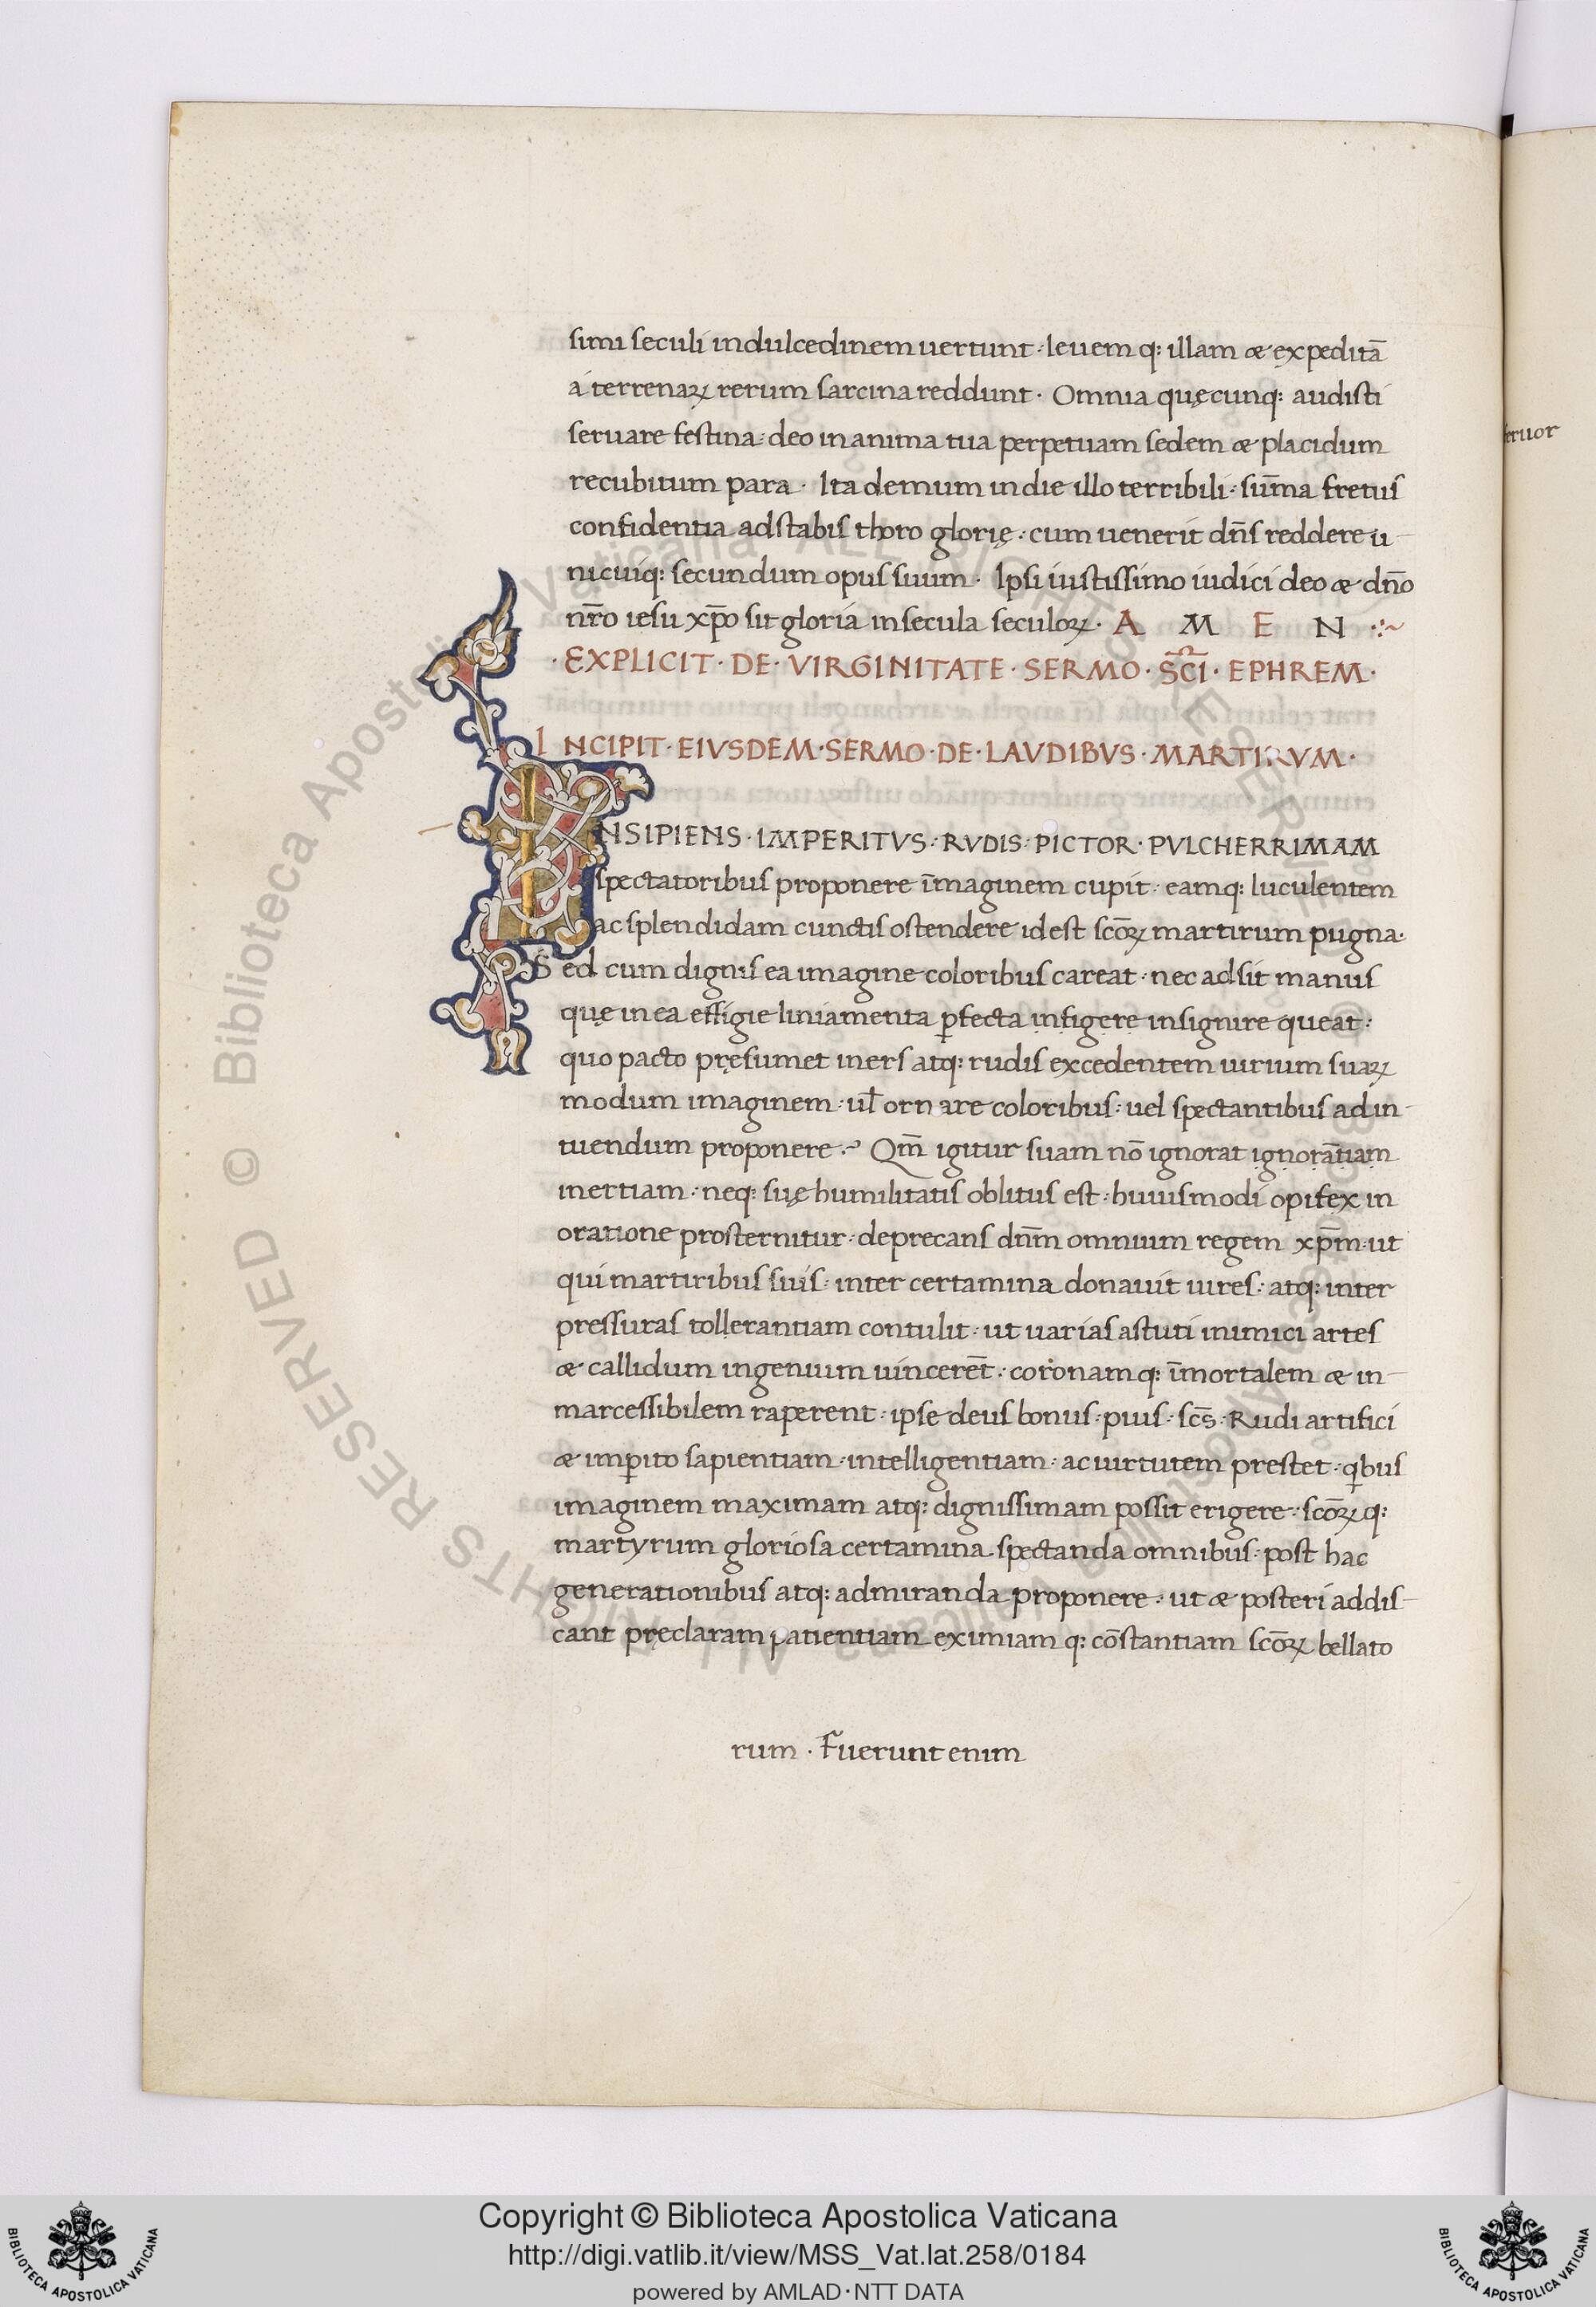 simi seculi in dulcedinem uertunt : leuem q: illam & expeditā
á terrenaꝝ rerum sarcina reddunt · Omnia quęcunq: audisti
seruare festina : deo in anima tua perpetuam sedem & placidum
recubitum para · Ita demum in die illo terribili : sūma fretus
confidentia adstabis thoro glorię : cum uenerit dn̄s reddere u-
nicuiq: secundum opus suum · Ipsi iustissimo iudici deo & dn̄o
nr̄o iesu xp̄o sit gloria in secula seculoꝝ · A M E N
· EXPLICIT · DE · VIRGINITATE · SERMO · SC̄I · EPHREM ·
INCIPIT · EIVSDEM · SERMO · DE · LAVDIBVS · MARTIRVM ·
INSIPIENS · IMPERITVS : RVDIS : PICTOR · PVLCHERRIMAM
spectatoribus proponere īmaginem cupit : eamq: luculentem
ac splendidam cunctis ostendere id est scōꝝ martirum pugna·
Sed cum dignis ea imagine coloribus careat · nec adsit manus
quę in ea effigie liniamenta ꝑfecta infigere insignire queat :
quo pacto pręsumet iners atq: rudis excedentem uirium suaꝝ
modum imaginem : ul̄ ornare coloribus : uel spectantibus ad in-
tuendum proponere · Qm̄ igitur suam nō ignorat ignorātiam
inertiam : neq: suę humilitatis oblitus est : huiusmodi opifex in
oratione prosternitur : deprecans dn̄m omnium regem xp̄m : ut
qui martiribus suis : inter certamina donauit uires : atq: inter
pressuras tollerantiam contulit : ut uarias astuti inimici artes
& callidum ingenium uincerēt : coronam q: īmortalem & in-
marcessibilem raperent : ipse deus bonus : pius : sc̄s · Rudi artifici
& imꝑito sapientiam : intelligentiam : ac uirtutem prestet : qͥbus
imaginem maximam atq: dignissimam possit erigere : scōꝝ q:
martyrum gloriosa certamina spectanda omnibus : post hac
generationibus atq: admiranda proponere : ut & posteri addis-
cant pręclaram patientiam eximiam q: cōstantiam scōꝝ bellato
rum · Fuerunt enim
eruor
Copyright © Biblioteca Apostolica Vaticana
http://digi.vatlib.it/view/MSS_Vat.lat.258/0184
powered by AMLAD·NTT DATA
BIBLIOTECA APOSTOLICA VATICANA
BIBLIOTECA APOSTOLICA VATICANA